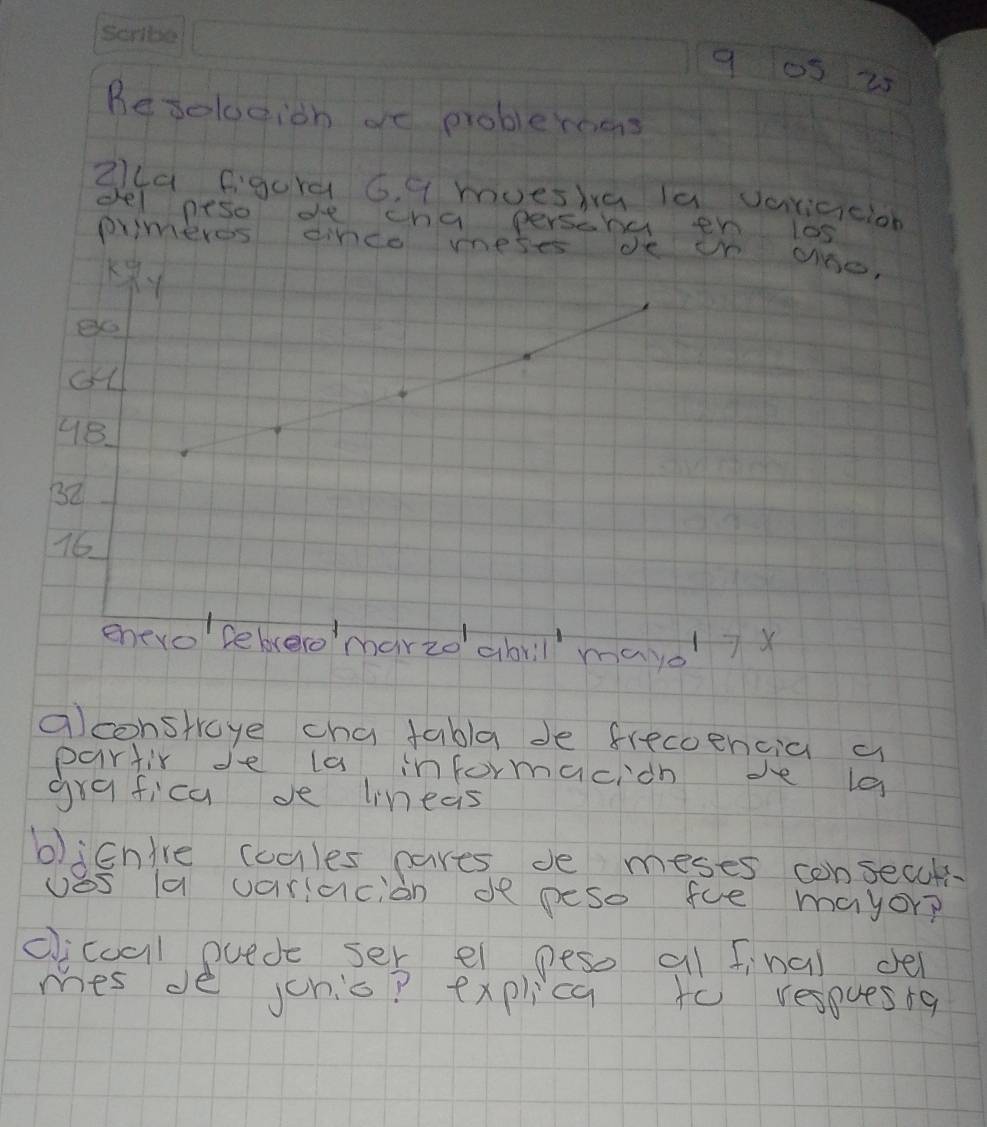 Scribe
9 05 25
Resolución de problemas
2) La figura 6.9 muestra la variación
del peso de una persona en los
primeros cinco meses de un año.
kg y
80
64
48
32
16
enero febrero marzo abril mayo x
a) construye una tabla de frecuencia a
partir de la información de la
grafica de lineas
b) ¿Entre cuales pares de meses consecuti-
vos la variación de peso fue mayor?
c) ¿cual puede ser el peso al final del
mes de junio? explica tu respuesta